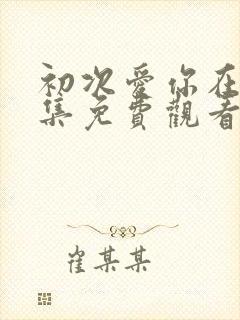 初次愛你在
集免費觀看
崔某某